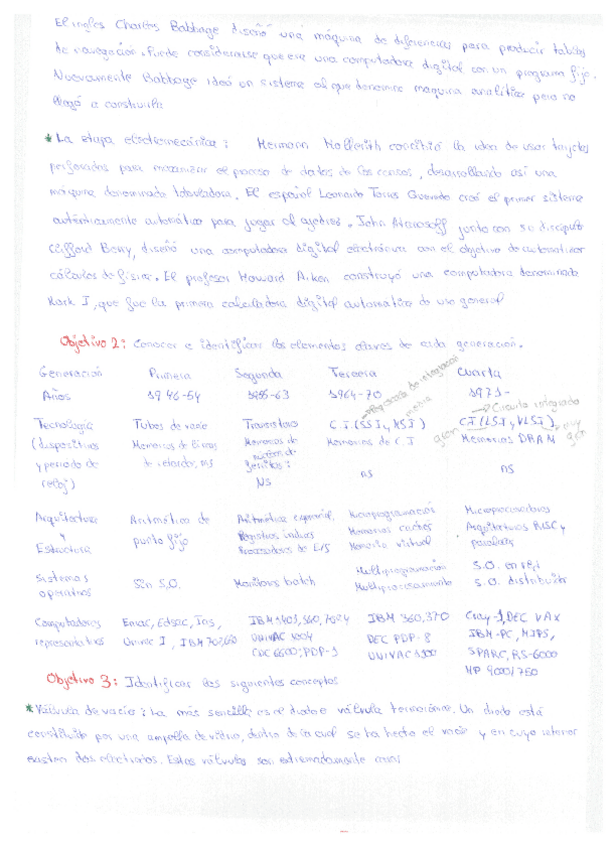 El ingles Charles Babbage diseñó una máquina de diferencias para producir tablas
de navegación. Puede considerarse que era una computadora digital con un programa fijo.
Nuevamente Babbage ideó un sistema al que denomino maquina analitica pero no
llegó a construirla
* La etapa electromecánica: Hermann Hollerith concibió la idea de usar tarjetas
perforadas para mecanizar el proceso de datos de los censos, desarrollando así una
máquina denominada tabuladora. El español Leonardo Torres Quevedo creó el primer sistema
auténticamente automático para jugar al ajedrez. John Atanasoff junto con su discípulo
Clifford Berry, diseñó una computadora digital electrónica con el objetivo de automatizar
cálculos de física. El profesor Howard Aiken construyó una computadora denominada
Mark I, que fue la primera calculadora digital automática de uso general
Objetivo 2: Conocer e identificar los elementos claves de cada generación.
Generación Primera Segunda Tercera Cuarta
Años 1946-54 1955-63 1964-70 1971-
→ escala de integración media → Circuito integrado
Tecnología Tubos de vacío Transistores C.I. (SSI y MSI) C.I (LSI y VLSI) muy
(dispositivos Memorias de líneas Memorias de Memorias de C.I gran Memorias DRAM gran
y periodo de de retardo, ms núcleos de
reloj) ferritas: ns ns
NS
Arquitectura Aritmética de Aritmética exponencial, Microprogramación Microprocesadores
y punto fijo Registros índices Memorias cachés Arquitecturas RISC y
Estructura Procesadores de E/S Memoria virtual paralelas
Sistemas Sin S.O. Monitores batch Multiprogramación S.O. en red
operativos Multiprocesamiento S.O. distribuidos
Computadores Eniac, Edsac, Ias, IBM 1401, 360, 7094 IBM 360, 370 Cray-1, DEC VAX
representativos Univac I, IBM 701, 650 UNIVAC 1004 DEC PDP-8 IBM-PC, MIPS,
CDC 6600; PDP-1 UNIVAC 1100 SPARC, RS-6000
HP 9000/750
Objetivo 3: Identificar los siguientes conceptos
* Válvula de vacío: La más sencilla es el diodo o válvula termoiónica. Un diodo está
constituido por una ampolla de vidrio, dentro de la cual se ha hecho el vacío y en cuyo interior
existen dos electrodos. Estas válvulas son extremadamente caras